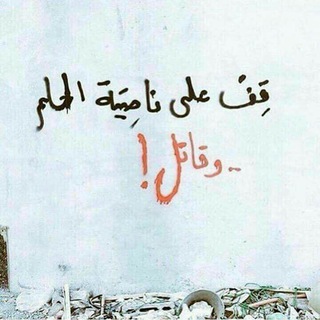 قِفْ على ناصِيَة الحلم
..وقاتل!